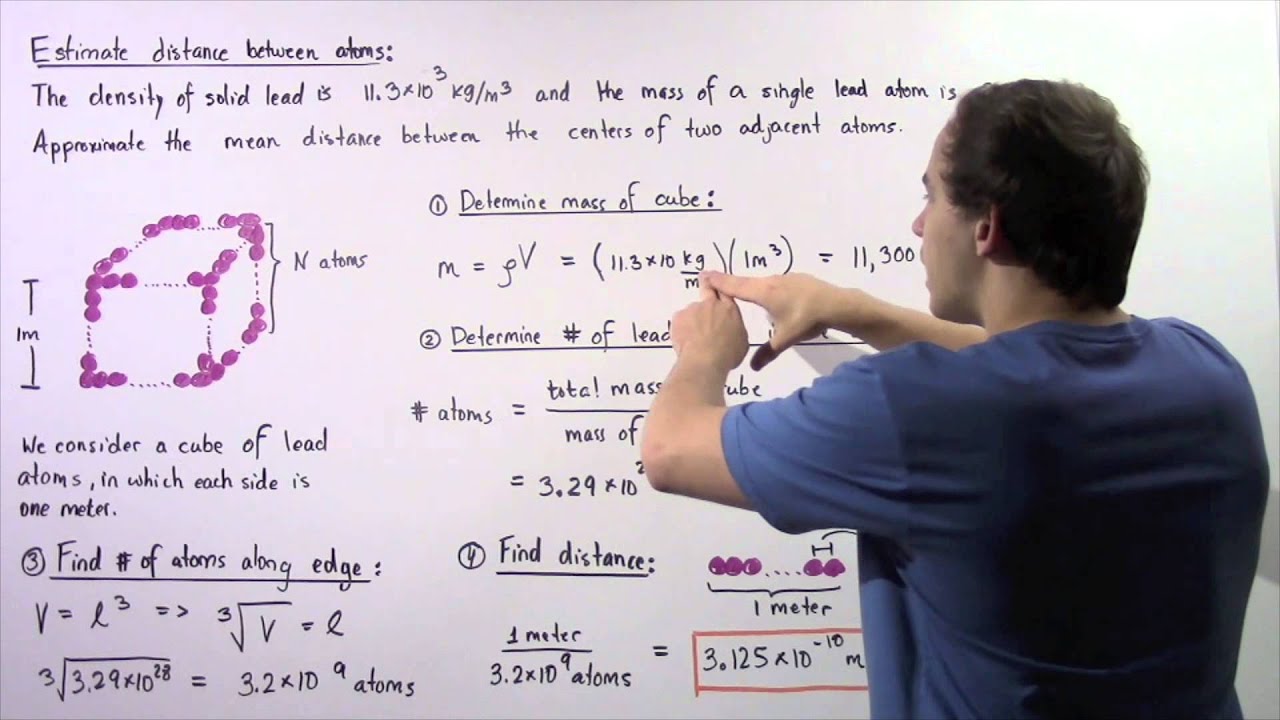 Estimate distance between atoms:
The density of solid lead is 11.3×10³ kg/m³ and the mass of a single lead atom is
Approximate the mean distance between the centers of two adjacent atoms.
N atoms
1m
We consider a cube of lead
atoms, in which each side is
one meter.
① Determine mass of cube:
m = ρV = (11.3×10 kg/m)(1m³) = 11,300
② Determine # of lead
# atoms = total mass cube / mass of
= 3.29×10²
③ Find # of atoms along edge:
V = l³ => ³√V = l
³√3.29×10²⁸ = 3.2×10⁹ atoms
④ Find distance:
1 meter
1 meter / 3.2×10⁹ atoms = 3.125×10⁻¹⁰ m